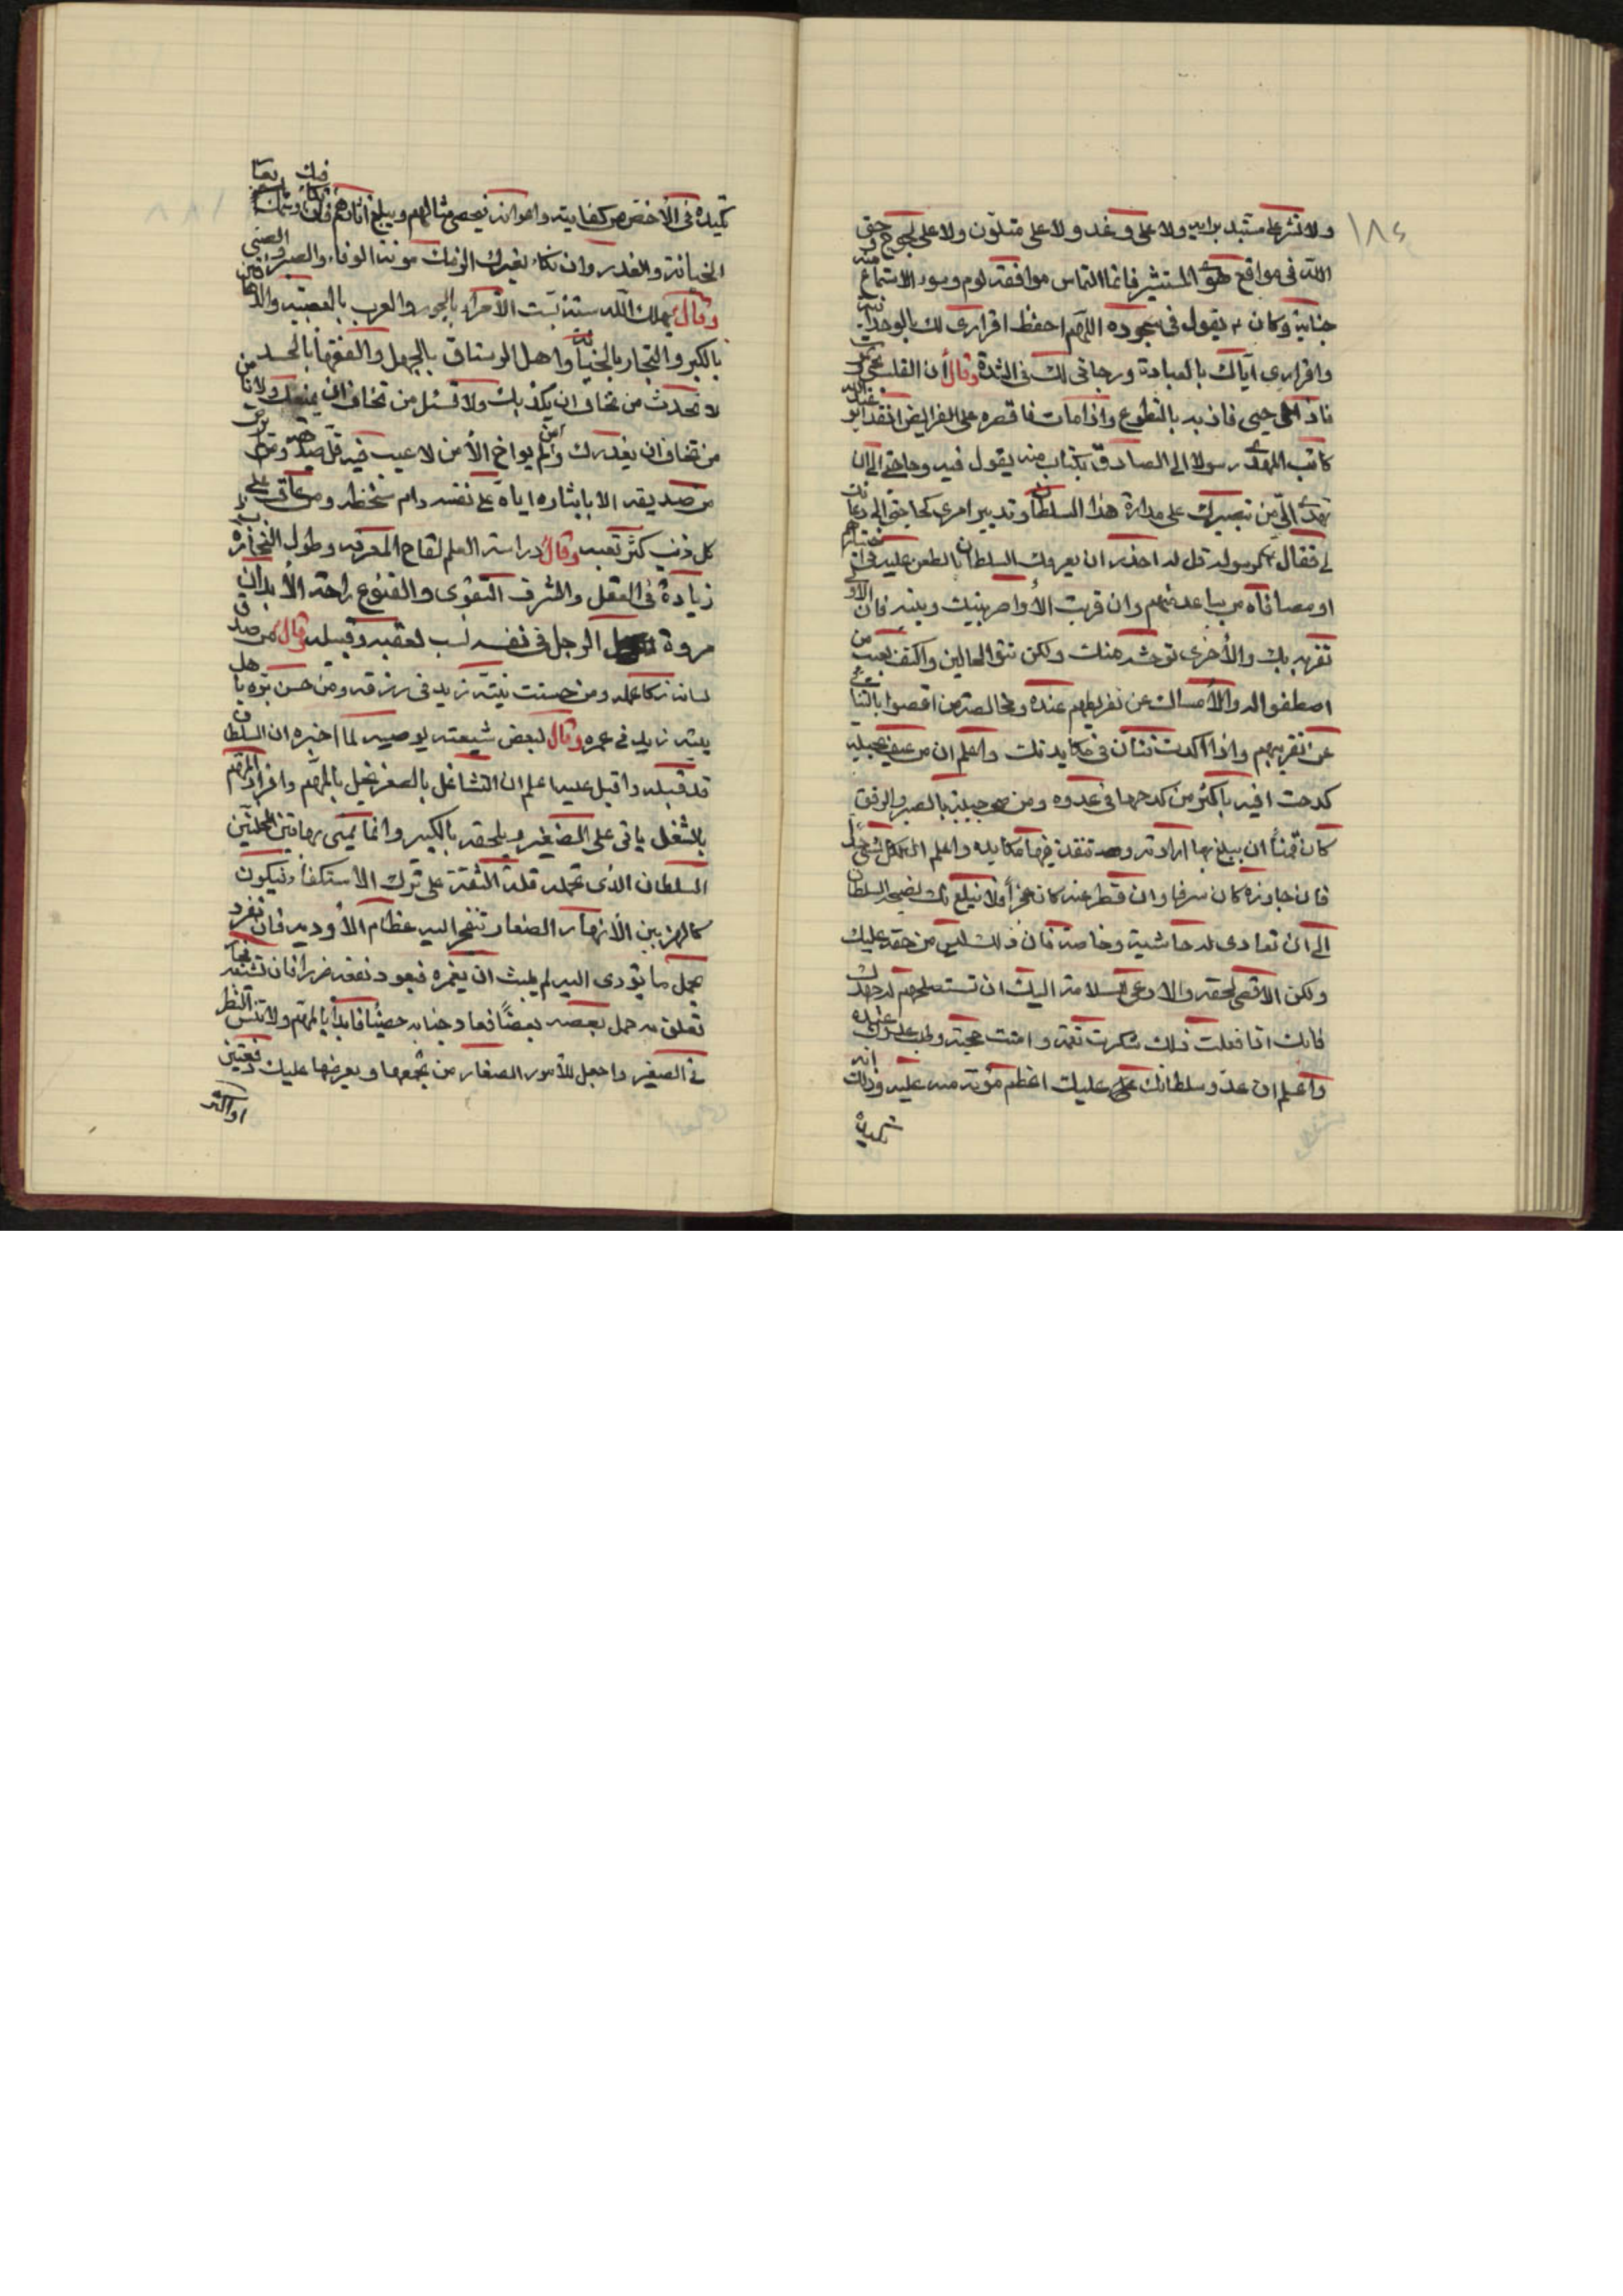 ١٨٤
ولا تشر على مستبد برايه ولا على وغد ولا على متلون ولا على لجوج وخف
الله في مواقع هوى المستشير فانما التماس موافقته لوم وسوء الاستماع منه
جناية وكان يقول في سجوده اللهم احفظ اقراري لك بالوحدانية
واقراري اياك بالعبادة ورجائي لك في الشدة وقال ان القلب يحيى ويموت
فاذا حيي فاذبه بالتطوع واذا مات فاقصره على الفرايض
كاتب المهدي رسولا الى الصادق بكتاب منه يقول فيه وحاجتي الى ان
تهدي الي من تبصيرك على مداراة هذا السلطان وتدبير امري كحاجتي الى دعائك
لي فقال لرسوله قل له احذر ان يعرفك السلطان بالطعن عليه في اختيار
او مصافاة من يباعد منهم وان قربت الأواصر بينك وبينه فان الاولى
تقربه بك والأخرى توحشه منك ولكن تتوسط الحالين واكتف بعيب من
اصطفوا له والأمساك عن تقريظهم عنده ومخالصة من اقصوا بالتنائي
عن تقريبهم واذا اكدت فتأن في مكايدتك واعلم ان من عنف بخيله
كدحت فيه باكثر من كدحها في عدوه ومن صحب خيله بالصبر والرفق
كان قمنا ان يبلغ بها ارادته وتنفذ فيها مكايده واعلم ان لكل شيء حدا
فان جاوزه كان سرفا وان قصر عنه كان عجزا فلا تبلغ بك نصيحة السلطان
الى ان تعادي له حاشيته وخاصته فان ذلك ليس من حقه عليك
ولكن الاقصى لحقه والادعى للسلامة اليك ان تستصلحهم له جهدك
فانك اذا فعلت ذلك شكرت نعمته وامنت حجته وطلب عدوك عنده
واعلم ان عدو سلطانك عليك اعظم مؤنة منه عليه وذلك انه
تكيده
تكيده في الأخص من كفايته واعوانه فيحصي مثالبهم ويبلغ
الخيانة والغدر وان نكاه بغيرك الزمك مؤنة الوفاء والصبر
وقال يهلك الله ستة بستة الأمراء بالجور والعرب بالعصبية والدهاقين
بالكبر والتجار بالخيانة واهل الرستاق بالجهل والفقهاء بالحسد
لا تحدث من تخاف ان يكذبك ولا تسئل من تخاف ان يمنعك ولا تأمن
من تخاف ان يغدرك ومن لم يواخ الأمن لا عيب فيه قل صديقه ومن لم يرض
من صديقه الا بايثاره اياه على نفسه دام سخطه ومن عاتب على
كل ذنب كثر تعبه وقال دراسة العلم لقاح المعرفة وطول التجارب
زيادة في العقل والشرف التقوى والقنوع راحة الأبدان
مروة الرجل في نفسه نسب لعقبه وقبيلته وقال من صدق
لسانه زكا عمله ومن حسنت نيته زيد في رزقه ومن حسن بره باهل
بيته زيد في عمره وقال لبعض شيعته يوصيه لما اخبره ان السلطان
قد قبله واقبل عليه اعلم ان التشاغل بالصغير يخل بالمهم وافراد المهم
بالشغل ياتي على الصغير ويلحقه بالكبير وانما يمنى بهاتين الخلتين
السلطان الذي تحمله قلة الثقة على ترك الاستكفاء فيكون
كالنهر بين الأنهار الصغار تتفجر اليه عظام الأودية فان تفرد
بحمل ما تؤدي اليه لم يلبث ان يغمره فيعود نفعه ضررا فان تشعبته
تعلق به حمل بعضه بعضا فعاد جنابه خصيبا فابدأ بالمهم ولا تنس النظر
في الصغير واجعل للأمور الصغار من يجمعها ويعرضها عليك دفعتين
او اكثر